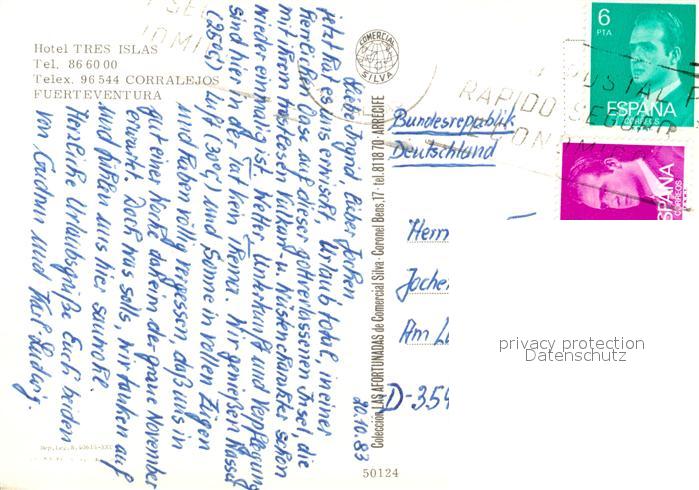 Hotel TRES ISLAS
Tel. 86 60 00
Telex. 96 544 CORRALEJOS
FUERTEVENTURA
20.10.83
Liebe Ingrid, lieber Jochen,
jetzt hat es uns erwischt, Urlaub total, in einer
herrlichen Oase auf dieser gottverlassenen Insel, die
mit ihrem trostlosen Vulkan- u. Wüstencharakter schon
wieder einmalig ist. Wetter, Unterkunft und Verpflegung
sind hier in der Tat kein Thema. Wir genießen Wasser
(25°C) Luft (30°C) und Sonne in vollen Zügen
und haben völlig vergessen, daß uns in
gut einer Woche daheim der graue November
erwartet. Doch was solls, wir tanken auf
und fühlen uns hier sauwohl.
Herzliche Urlaubsgrüße Euch beiden
von Gudrun und Karl Ludwig.
COMERCIAL
SILVA
Colección LAS AFORTUNADAS de Comercial Silva · Coronel Bens, 17 · tel. 81 18 70 ARRECIFE
50124
6
PTA
ESPAÑA
CORREOS
ESPAÑA
CORREOS
POSTAL
RAPIDO SEGURO
Bundesrepublik
Deutschland
Herrn
Am
D-354
privacy protection
Datenschutz